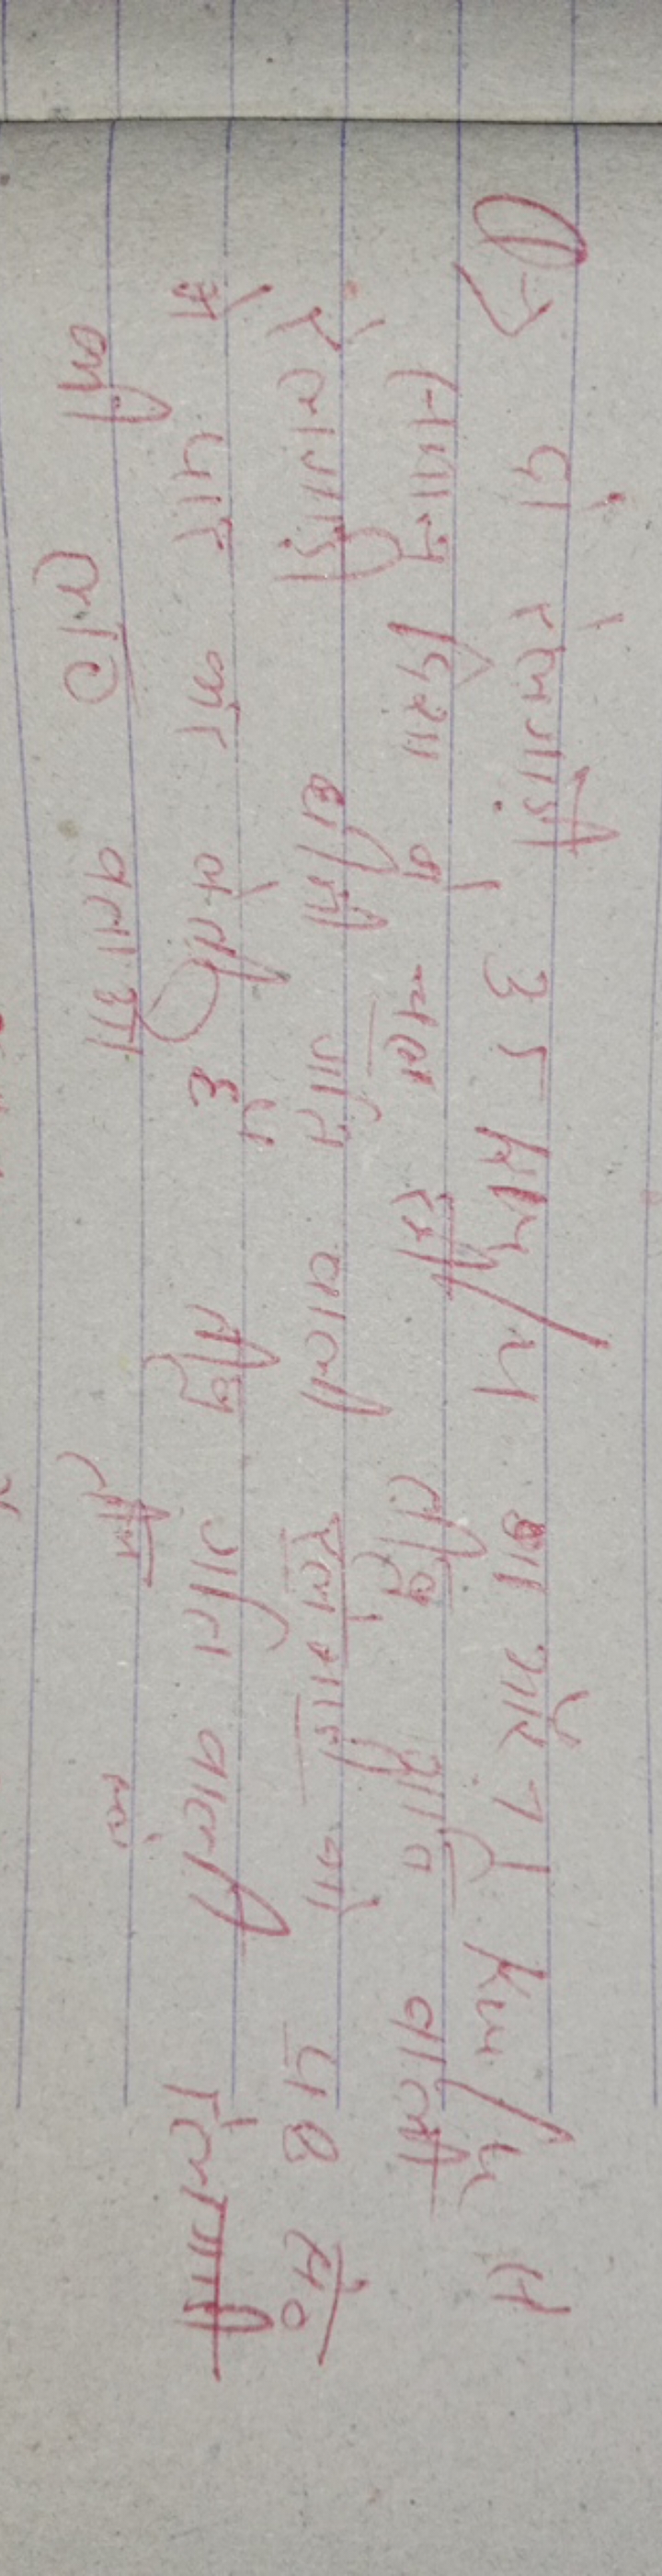 Q→ दो रेलगाड़ी 35 km/H का और 71 km/H से
समान दिशा में चल रही तीव्र गति वाली
रेलगाड़ी धीमी गति वाली रेलगाड़ी को 48 से०
में पार कर लेती है तीव्र गति वाली रेलगाड़ी
की लंबाई बताओ